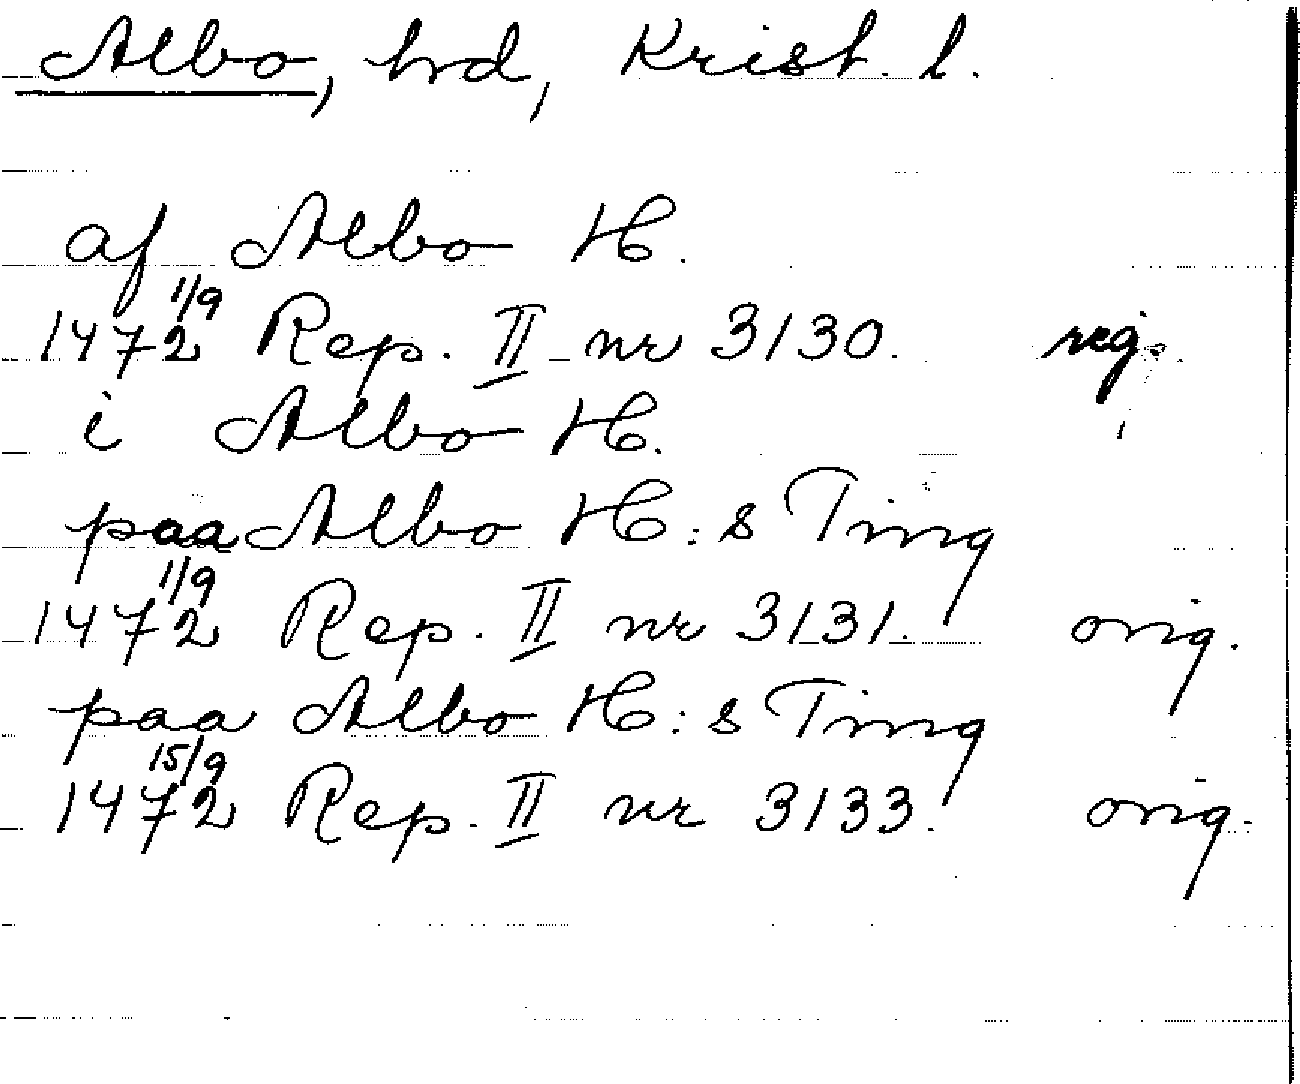 Albo, hrd, Krist. l.
af Albo H.
1/9
1472 Rep. II nr 3130. reg.
i Albo H.
paa Albo H:s Ting
1/9
1472 Rep. II nr 3131. orig.
paa Albo H:s Ting
15/9
1472 Rep. II nr 3133. orig.